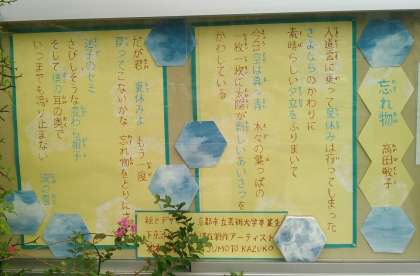 忘れ物
高田敏子
入道雲に乗って 夏休みは行ってしまった
さよならのかわりに
素晴らしい夕立をふりまいて
今日 空は真っ青 木々の葉っぱの
一枚一枚に 太陽が 新しいあいさつを
かわしている
だが君 夏休みよ もう一度
戻ってこないかな 忘れ物をとりにさ
迷子のセミ
さびしそうな 麦わら帽子
そして 僕の耳の奥で
いつまでも 鳴り止まない
波の音
絵とデザイン 京都市立芸術大学卒業生
創作アーティスト
KAZUKO